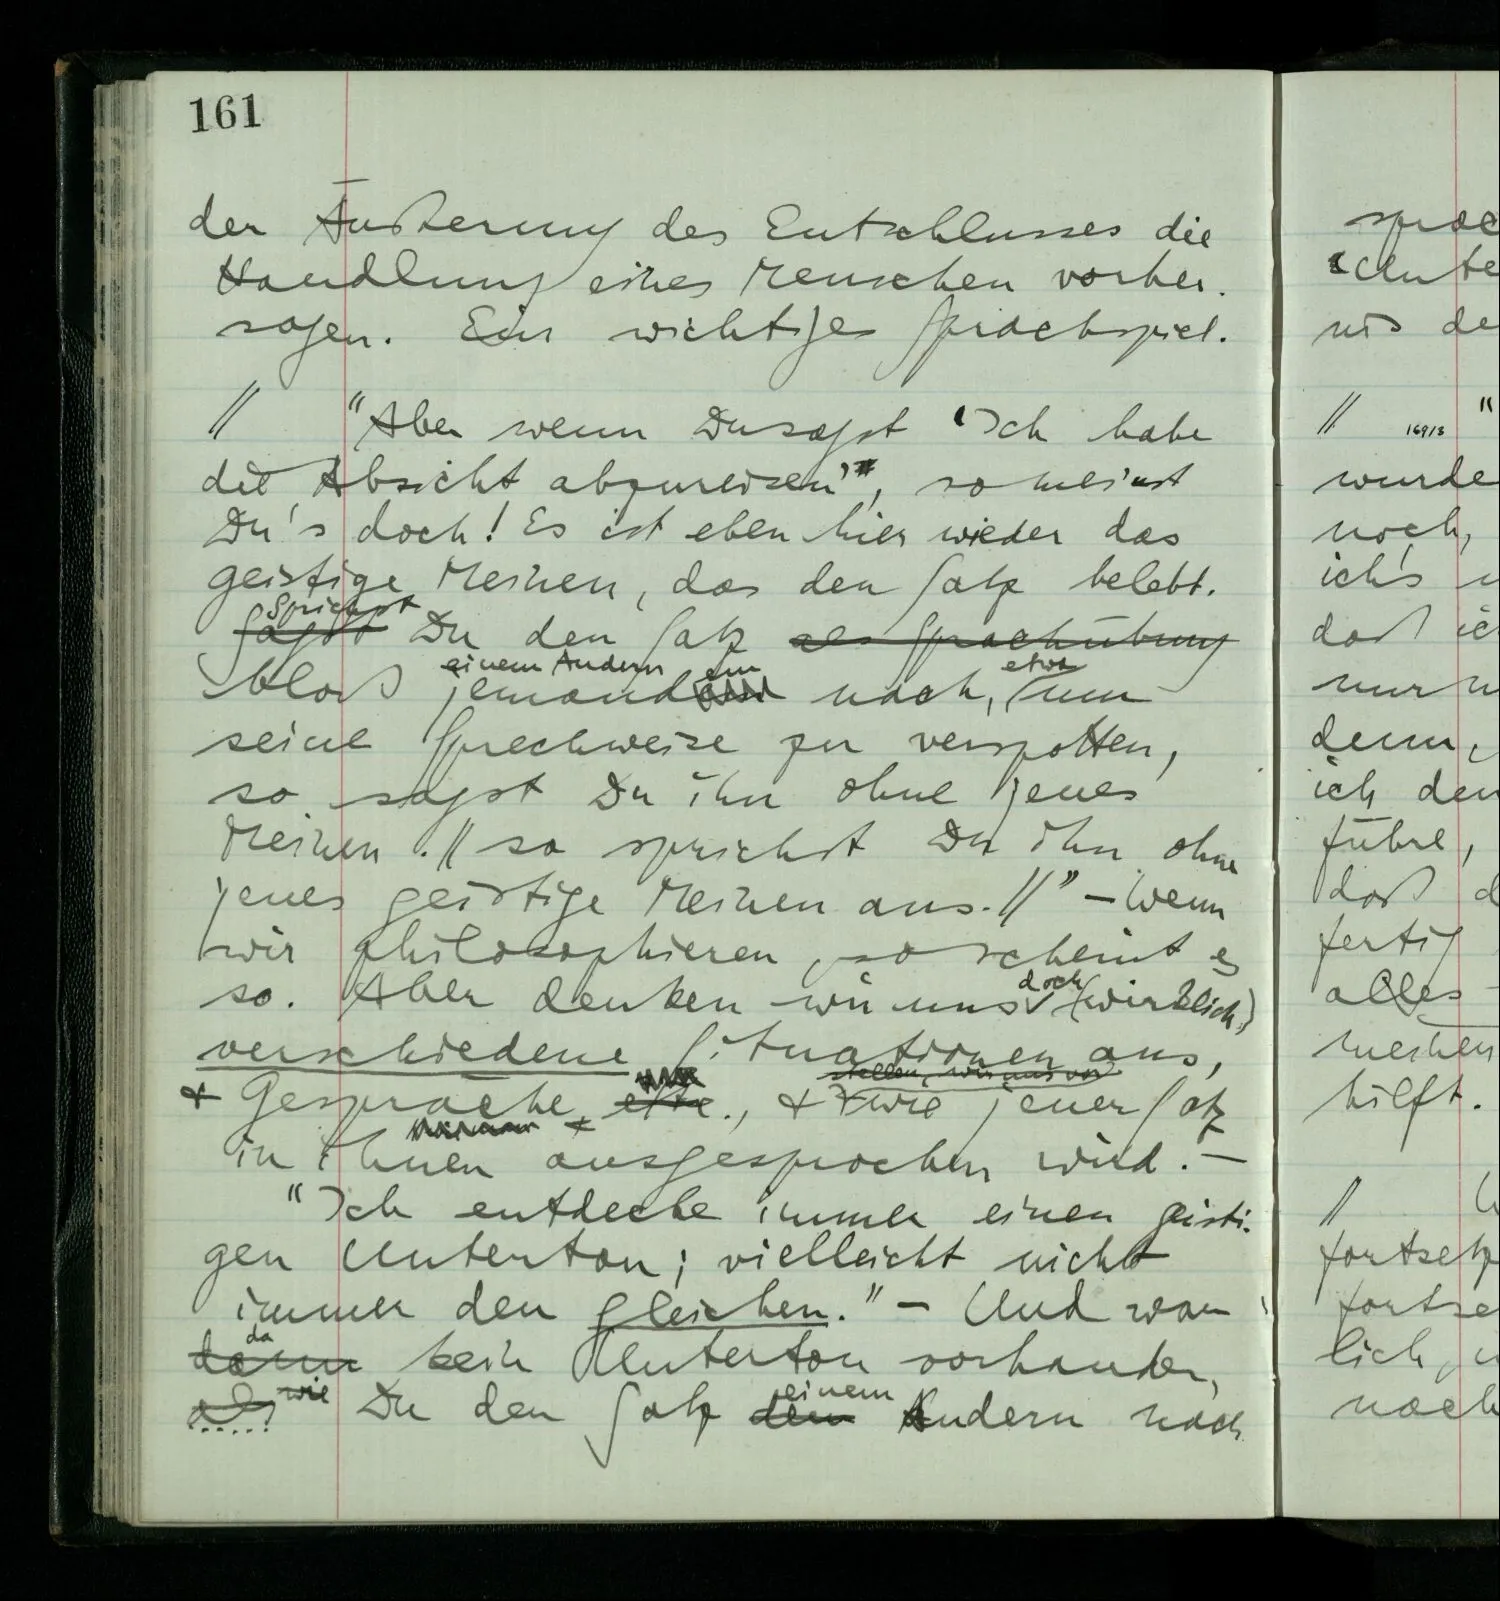 161
der Äußerung des Entschlusses die
Handlung eines Menschen vorher-
sagen. Ein wichtiges Sprachspiel.
// "Aber wenn Du sagst 'Ich habe
die Absicht abzureisen'", so meinst
Du's doch! Es ist eben hier wieder das
geistige Meinen, das den Satz belebt.
Sprichst
Sagst Du den Satz als Sprachübung
einem Andern em etwa
bloß jemand nach, um
seine Sprechweise zu verspotten,
so sagst Du ihn ohne jenes
Meinen. // so sprichst Du ihn ohne
jenes geistige Meinen aus. //" – Wenn
wir philosophieren, so scheint es
doch
so. Aber denken wir uns (wirklich)
verschiedene Situationen aus,
stellen wir uns vor
& Gespräche etc., & wie jener Satz
in ihnen ausgesprochen wird. –
"Ich entdecke immer einen geisti-
gen Unterton; vielleicht nicht
immer den gleichen." – Und war
da
dann kein Unterton vorhanden,
wie einem
als Du den Satz dem Andern nach
sprac
Unte
uns de
// "
169/3
wurde
noch,
ich's
daß ic
nur
denn,
ich den
führe,
daß d
fertig
alles
meinen
hilft.
//
fortsetz
fortse
lich,
nach